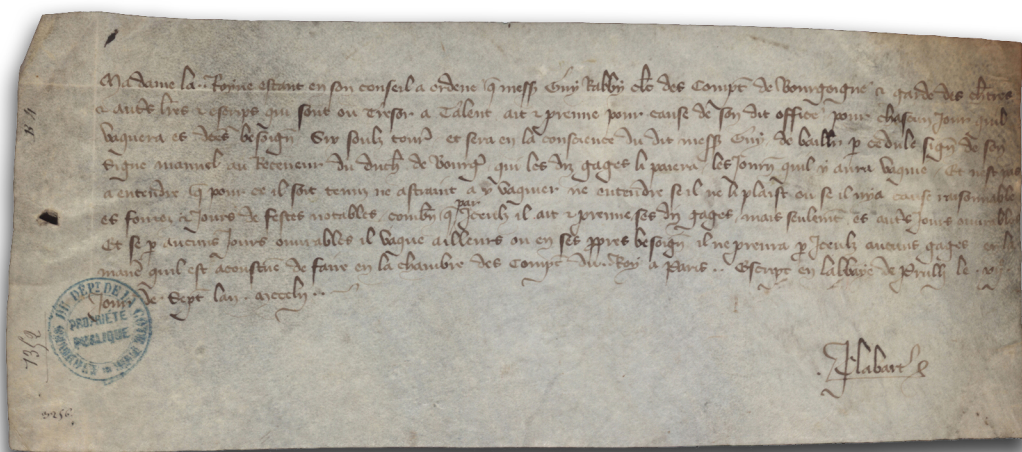 Madame la Royne estant en son conseil a ordené q̃ mess Guy Rabby cl̃c des Compt̃ de Bourgoigne & garde des ch̃res
& aut̃s l̃res & escrips qui sont ou Tresor a Talent ait & prenne pour cause de son dit office pour chascun Jour quil
vaquera es dc̃es besoign̄ Six soulz tourñ et sera en la conscience du dit mess Guy de baill̃r p̱ cedule sign̄ de son
signe manuel au Receneur du duch̃ de Bourg̃ qui les dĩz gages li paiera les Journ̄ quil y aura vaquie Et nest pas
a entendre q̃ pour ce il soit tenu ne astraint a y vaquer ne entendre se il ne li plaist ou se il nya cause raisonnable
es foires & Jours de festes notables, combñ q̃ par Iceulx il ait & prenne ses dĩz gages, mais seulemt̃ es aut̃s Jours ouvrables
Et se p̱ aucuns Jours ouvrables il vaque ailleurs ou en ses p̱pres besoign̄ il ne prenra p̱ Iceulx aucuns gages et la
mane quil est acoustume de faire en la chambre des Compt̃ du Roy a Paris Escript en labbaye de Pruilly le
Jour de Sept̃ lan mccclij
PROPRIÉTÉ
PUBLIQUE
1352